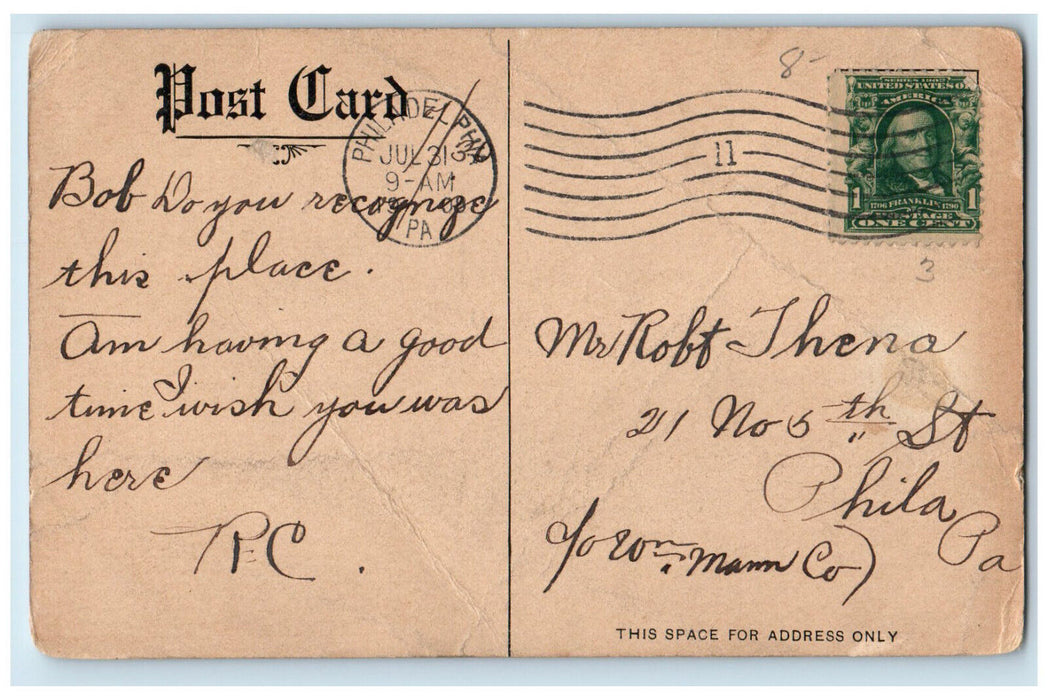 Post Card
PHILADELPHIA
JUL 31
9-AM
PA
11
8-
SERIES 1902
UNITED STATES OF
AMERICA
1 1706 FRANKLIN 1790 1
POSTAGE
ONE CENT
3
Bob Do you recognize
this place.
Am having a good
time I wish you was
here
RC.
Mr Robt Thena
21 No 5th St
Phila
Pa
c/o Wm Mann Co)
THIS SPACE FOR ADDRESS ONLY